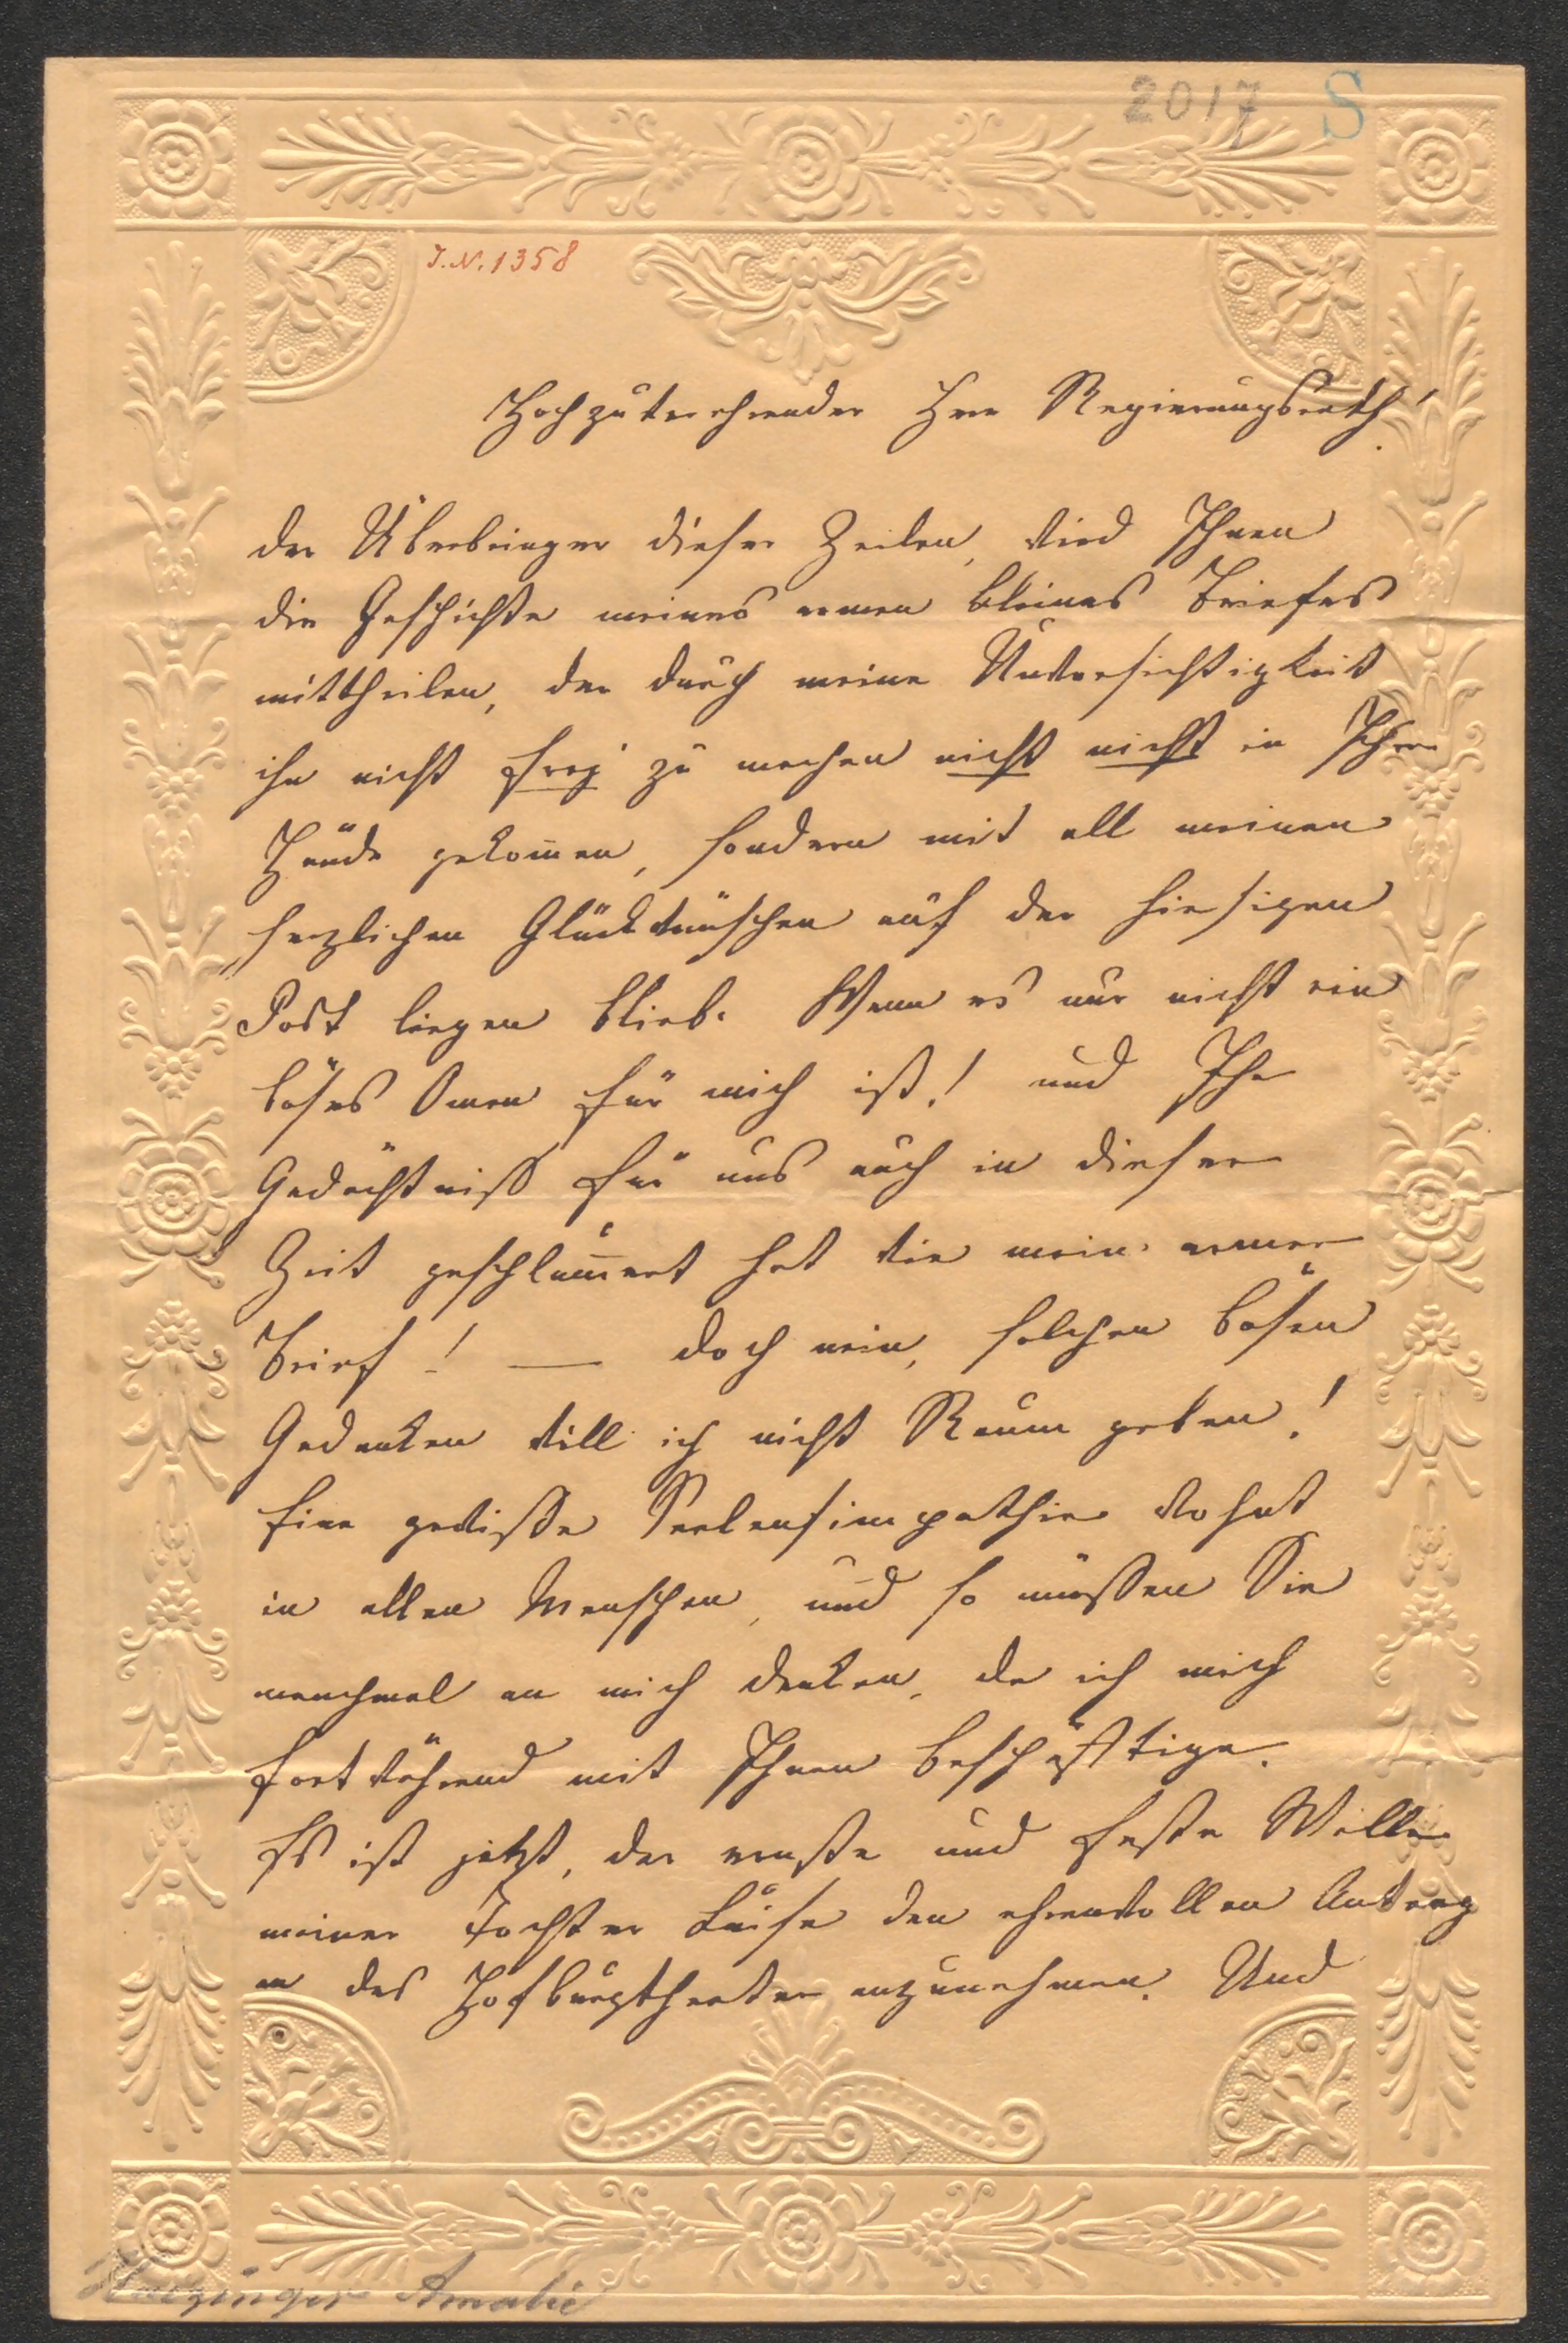 2017 S
J.N. 1358
Hochzuverehrender Herr Regierungsrath!
der Überbringer dieser Zeilen, wird Ihnen
die Geschichte meines armen kleines Briefes
mittheilen, der durch meine Unvorsichtigkeit
ihn nicht frey zu machen nicht nicht in Ihre
Hände gekom̅en, sondern mit all meinen
herzlichen Glückwünschen auf der hiesigen
Post liegen blieb. Wenn es nur nicht ein
böses Omen für mich ist! und Ihr
Gedächtniss für uns auch in dieser
Zeit geschlum̅ert hat wie mein armer
Brief! — doch nein, solchen bösen
Gedanken will ich nicht Raum geben!
Eine gewisse Seelensimpathie wohnt
in allen Menschen, und so müssen Sie
manchmal an mich denken, da ich mich
fortwährend mit Ihnen beschäftige.
Es ist jetzt, der ernste und feste Wille
meiner Tochter Luise den ehrenvollen Antrag
an das Hofburgtheater anzunehmen. Und
Haizinger Amalie